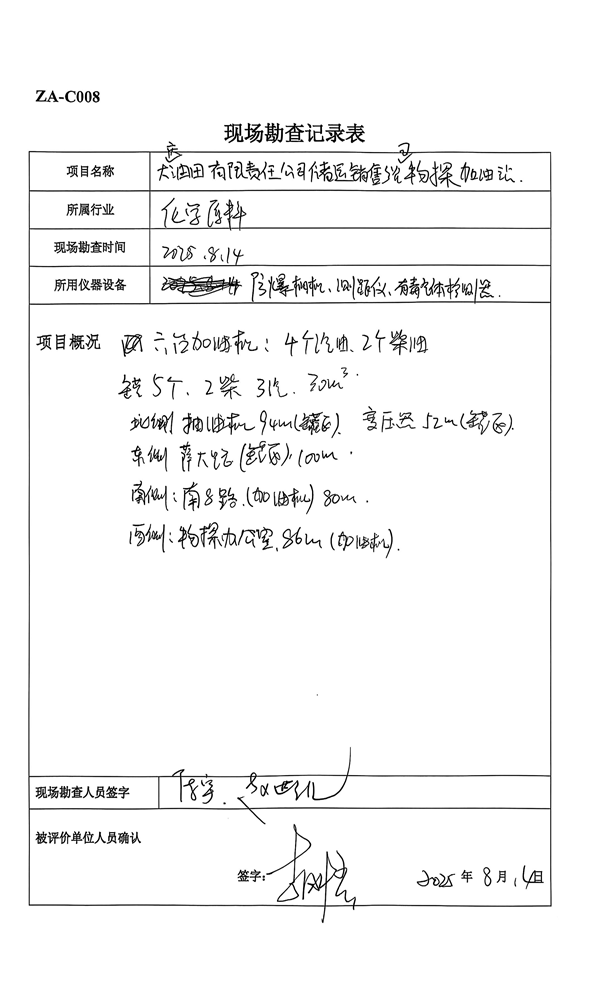 ZA-C008
现场勘查记录表
项目名称 大庆油田有限责任公司储运销售分公司物探加油站.
所属行业 化学原料
现场勘查时间 2025.8.14
所用仪器设备 防爆相机、测距仪、有毒气体检测器.
项目概况 四六位加油机:4个汽油、2个柴油
罐5个、2柴 3汽. 30m³.
北侧 抽油机94m(罐区). 变压器52m(罐区).
东侧 萨大路(罐区)100m.
南侧:南8路.(加油机)80m.
西侧:物探办公室.86m(加油机).
现场勘查人员签字
被评价单位人员确认
签字:
2025年8月14日